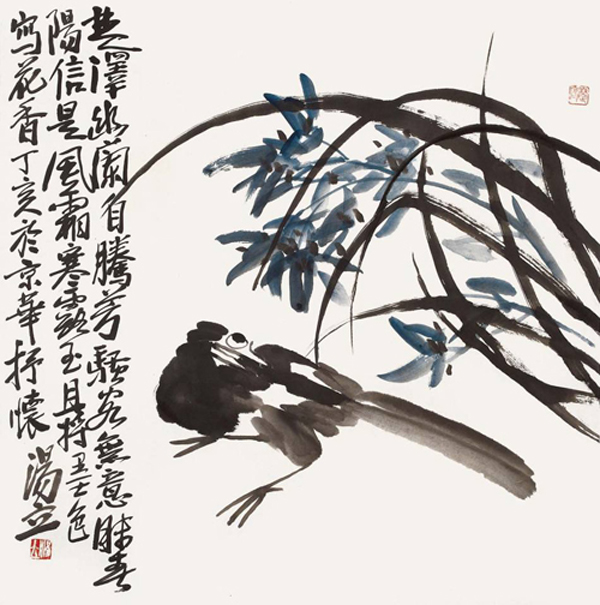 楚澤幽蘭自騰芳騷客無意春
陽信是風霜寒露玉且將墨色
寫花香丁亥於京華抒懷
湯立